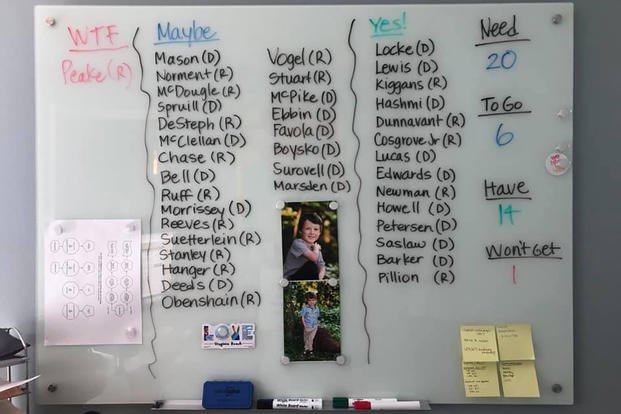 WTF
Peake (R)
Maybe
Mason (D)
Norment (R)
McDougle (R)
Spruill (D)
DeSteph (R)
McClellan (D)
Chase (R)
Bell (D)
Ruff (R)
Morrissey (D)
Reeves (R)
Suetterlein (R)
Stanley (R)
Hanger (R)
Deeds (D)
Obenshain (R)
Vogel (R)
Stuart (R)
McPike (D)
Ebbin (D)
Favola (D)
Boysko (D)
Surovell (D)
Marsden (D)
LOVE
Virginia Beach
Yes!
Locke (D)
Lewis (D)
Kiggans (R)
Hashmi (D)
Dunnavant (R)
Cosgrove Jr (R)
Lucas (D)
Edwards (D)
Newman (R)
Howell (D)
Petersen (D)
Saslaw (D)
Barker (D)
Pillion (R)
Need
20
To Go
6
Have
14
Won't Get
1